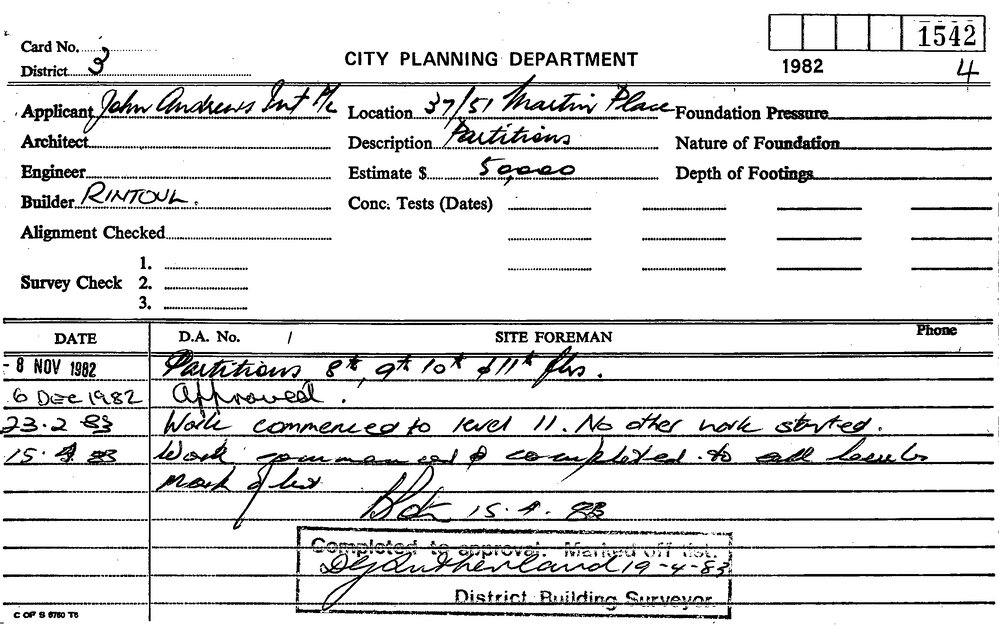 1542
Card No. 3
CITY PLANNING DEPARTMENT
District 3
1982
4
Applicant John Andrews Int P/L Location 37/51 Martin Place Foundation Pressure
Architect Description Partitions Nature of Foundation
Engineer Estimate $ 50,000 Depth of Footings
Builder RINTOUL. Conc. Tests (Dates)
Alignment Checked
1.
Survey Check 2.
3.
DATE D.A. No. / SITE FOREMAN Phone
- 8 NOV 1982 Partitions 8th, 9th 10th & 11th flrs.
6 DEC 1982 Approved.
23.2 83 Work commenced to level 11. No other work started.
15.4.83 Work commenced & completed to all levels
Mark of list
15.4.83
Completed to approval. Marked off list.
DG Rutherland 19-4-83
District Building Surveyor.
C OF S 6760 T6